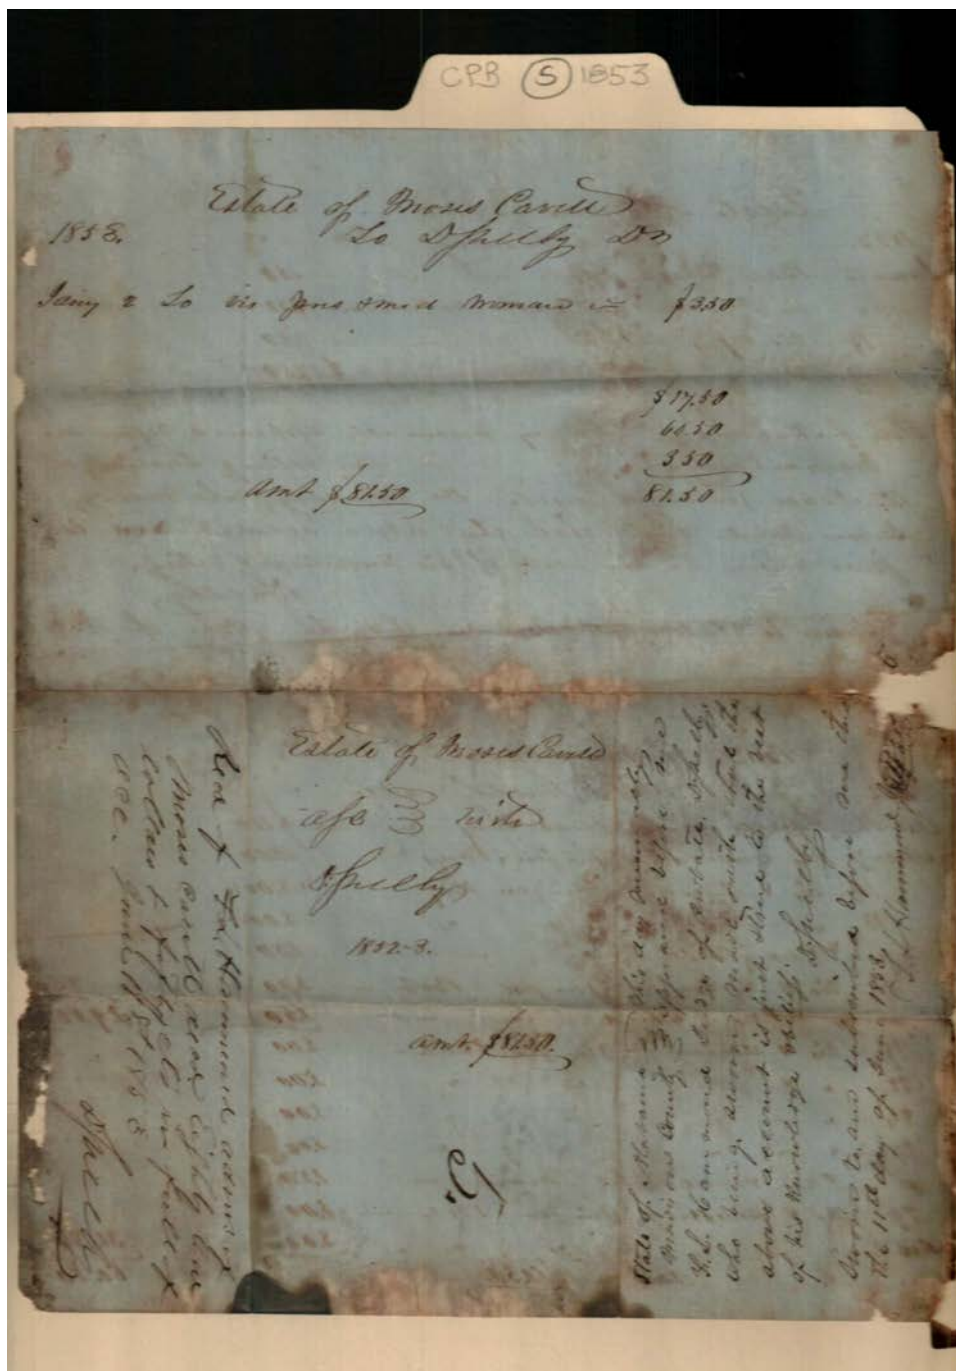 CPB S 1853
Estate of Moses Cavett
1853. To D Shelby Dr
Jany 2 To vis pres & med woman $3.50
$17.50
60.50
3.50
amt $81.50 81.50
Estate of Moses Cavett
a/c with
D Shelby
1852-3.
amt. $81.50.
5.
Recd of F. L. Hammond admr of
Moses Cavett decd Eighty one
dollars & fifty cts in full of
acc. June 11th 1853
D Shelby
State of Alabama This day personally
Madison County appeared before me
F. L. Hammond Judge of Probate, D Shelby,
who being sworn, made oath that the
above account is just & true to the best
of his knowledge & belief.
D Shelby
Sworn to, and subscribed before me this
the 11th day of June 1853.
F. L. Hammond